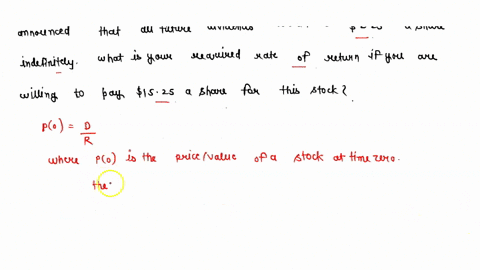 announced that all future dividends a share
indefinitely. what is your required rate of return if you are
willing to pay $15.25 a share for this stock?
P(0) = D
R
where P(0) is the price/value of a stock at time zero.
the